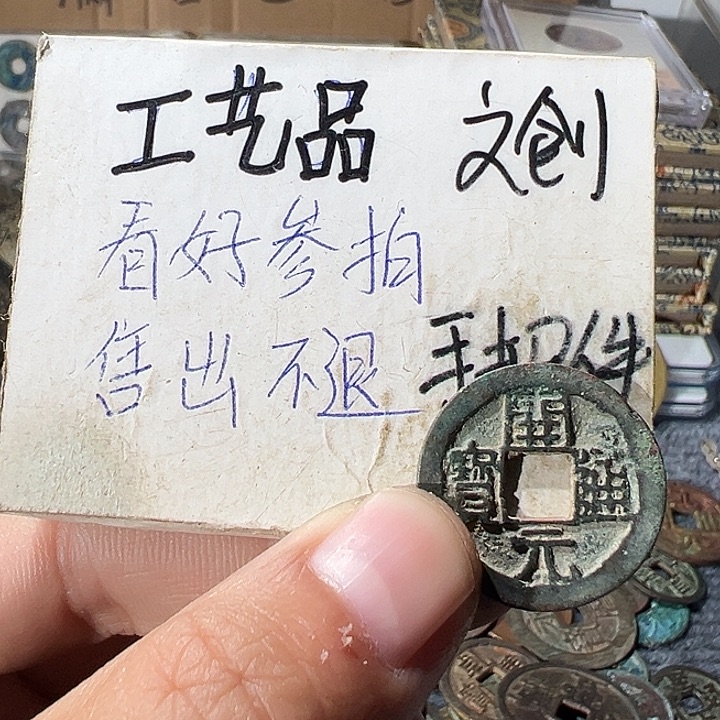 工艺品 文创
看好参拍
售出不退 手把件
開元通寶